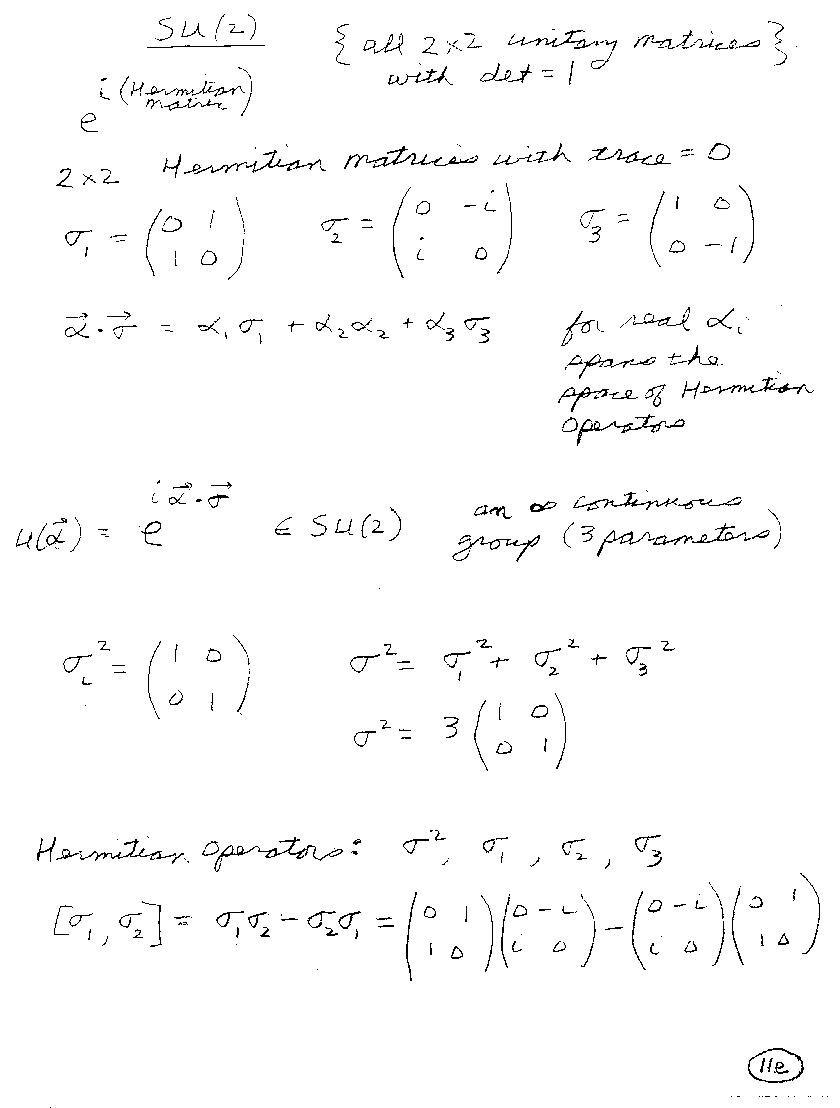 SU(2) { all 2×2 unitary matrices }
with det = 1
e^{i (Hermitian matrix)}
2×2 Hermitian matrices with trace = 0
σ₁ = (0 1; 1 0) σ₂ = (0 -i; i 0) σ₃ = (1 0; 0 -1)
α⃗·σ⃗ = α₁σ₁ + α₂α₂ + α₃σ₃ for real αᵢ
spans the
space of Hermitian
Operators
u(α⃗) = e^{i α⃗·σ⃗} ∈ SU(2) an ∞ continuous
group (3 parameters)
σᵢ² = (1 0; 0 1) σ² = σ₁² + σ₂² + σ₃²
σ² = 3 (1 0; 0 1)
Hermitian Operators: σ², σ₁, σ₂, σ₃
[σ₁, σ₂] = σ₁σ₂ - σ₂σ₁ = (0 1; 1 0)(0 -i; i 0) - (0 -i; i 0)(0 1; 1 0)
11e